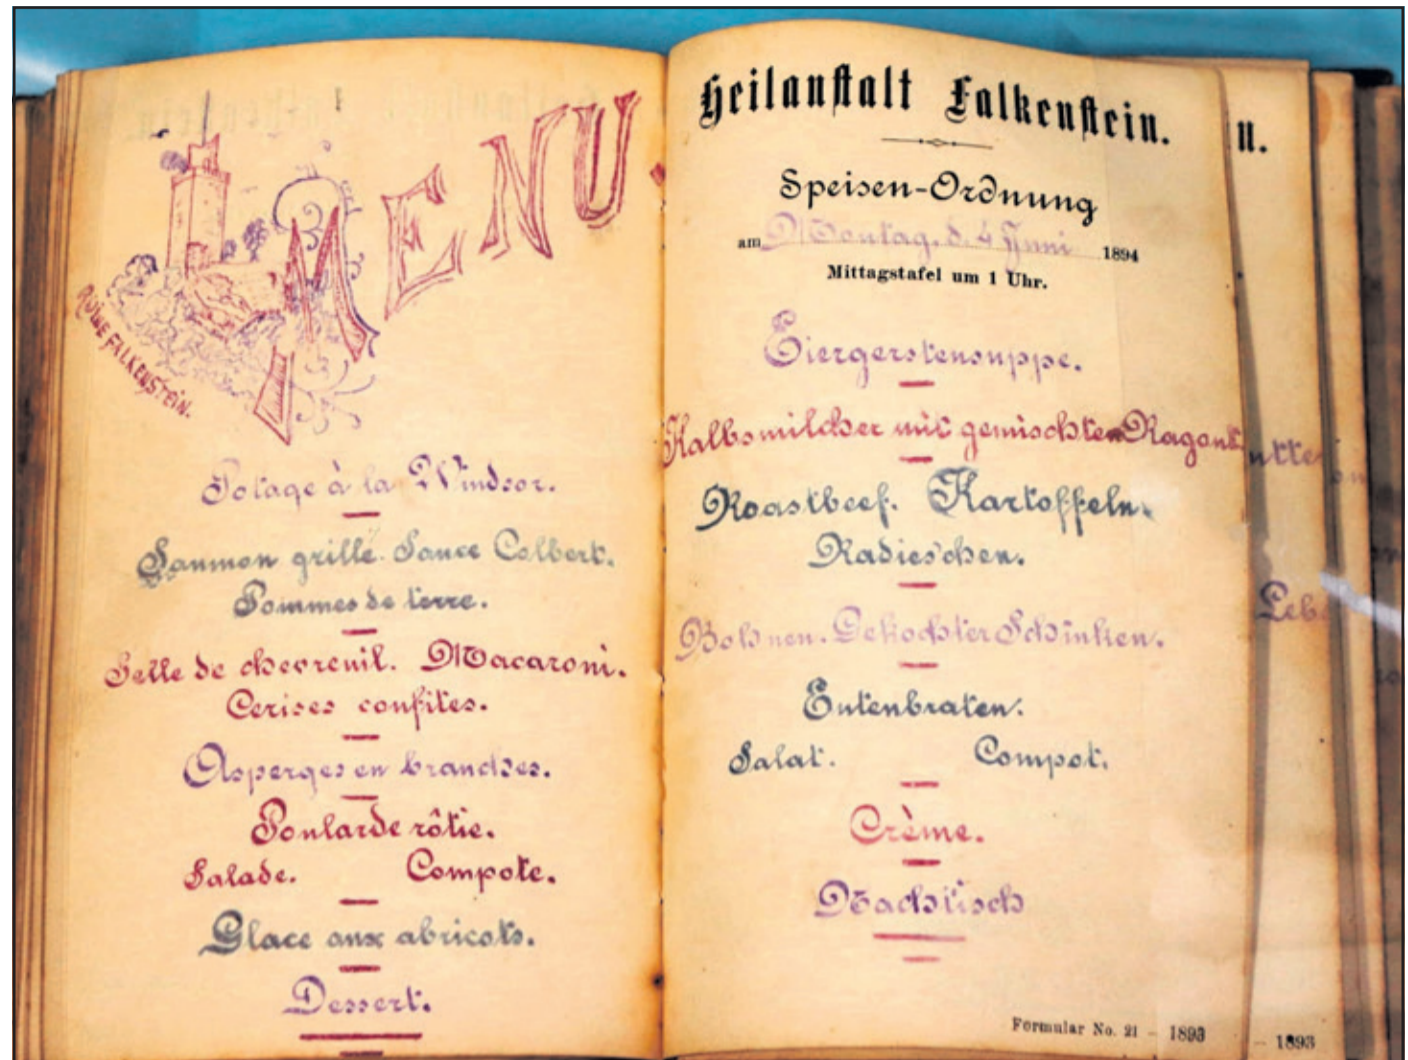 MENU.
RUINE FALKENSTEIN.
Potage à la Windsor.
Saumon grillé. Sauce Colbert.
Pommes de terre.
Selle de chevreuil. Macaroni.
Cerises confites.
Asperges en branches.
Poularde rôtie.
Salade. Compote.
Glace aux abricots.
Dessert.
Heilanstalt Falkenstein.
Speisen-Ordnung
am Montag, d. 4 Juni 1894
Mittagstafel um 1 Uhr.
Eiergerstensuppe.
Kalbsmilcher mit gemischten Ragout
Roastbeef. Kartoffeln.
Radieschen.
Bohnen. Gekochter Schinken.
Entenbraten.
Salat. Compot.
Crème.
Nachtisch
Formular No. 21 – 1893
n.
Leb
– 1893